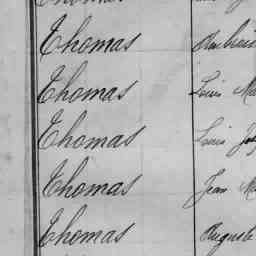 Thomas
Thomas Ambrois
Thomas Louis Ma
Thomas Louis Jos
Thomas Jean M
Thomas Auguste